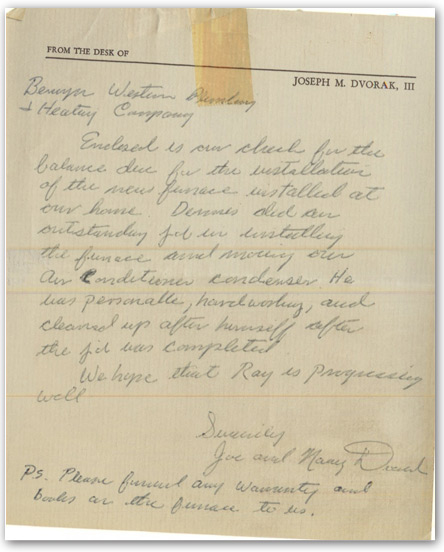 FROM THE DESK OF
JOSEPH M. DVORAK, III
Berwyn Western Plumbing
+ Heating Company
Enclosed is our check for the
balance due for the installation
of the new furnace installed at
our home. Dennis did an
outstanding job in installing
the furnace and moving our
Air Conditioner condenser. He
was personable, hardworking, and
cleaned up after himself after
the job was completed
We hope that Ray is progressing
well
Sincerely
Joe and Nancy Dvorak
PS. Please forward any warranty and
books on the furnace to us.